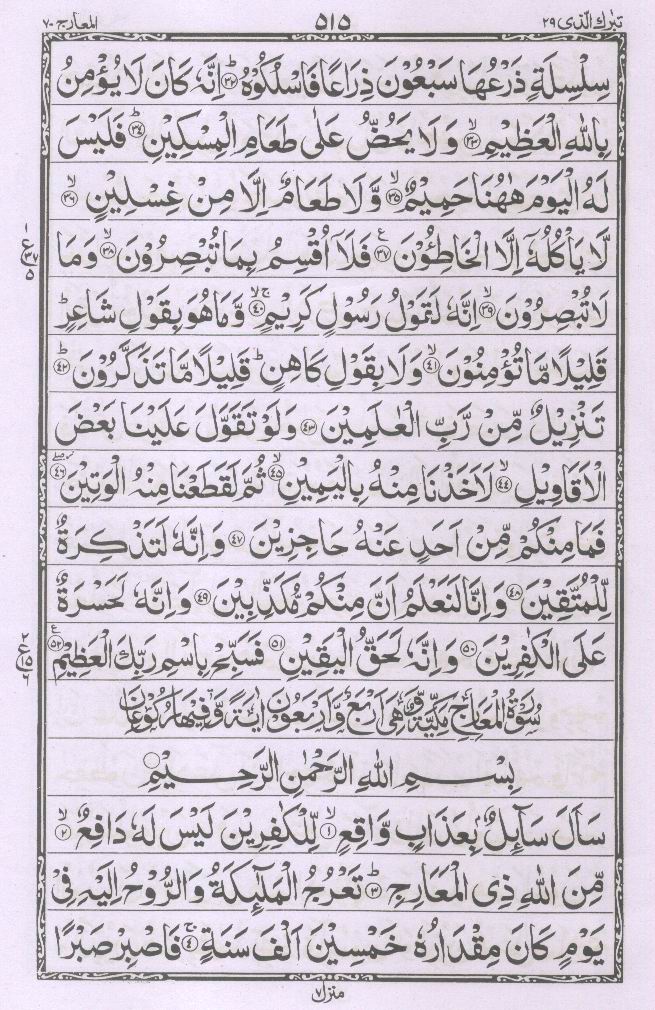 تبٰرك الذى ٢٩ ٥١٥ المعارج ٧٠
سِلْسِلَةٍ ذَرْعُهَا سَبْعُوْنَ ذِرَاعًا فَاسْلُكُوْهُ ؕ‏﴿۳۲﴾ اِنَّهٗ كَانَ لَا يُؤْمِنُ
بِاللّٰهِ الْعَظِيْمِ ۙ‏﴿۳۳﴾ وَلَا يَحُضُّ عَلٰى طَعَامِ الْمِسْكِيْنِ ؕ‏﴿۳۴﴾ فَلَيْسَ
لَهُ الْيَوْمَ هٰهُنَا حَمِيْمٌ ۙ‏﴿۳۵﴾ وَّلَا طَعَامٌ اِلَّا مِنْ غِسْلِيْنٍ ۙ‏﴿۳۶﴾
لَّا يَاْكُلُهٗۤ اِلَّا الْخَاطِئُوْنَ ‏﴿۳۷﴾ فَلَاۤ اُقْسِمُ بِمَا تُبْصِرُوْنَ ۙ‏﴿۳۸﴾ وَمَا
لَا تُبْصِرُوْنَ ۙ‏﴿۳۹﴾ اِنَّهٗ لَقَوْلُ رَسُوْلٍ كَرِيْمٍ ۚۙ‏﴿۴۰﴾ وَّمَا هُوَ بِقَوْلِ شَاعِرٍ ؕ
قَلِيْلًا مَّا تُؤْمِنُوْنَ ۙ‏﴿۴۱﴾ وَلَا بِقَوْلِ كَاهِنٍ ؕ قَلِيْلًا مَّا تَذَكَّرُوْنَ ؕ‏﴿۴۲﴾
تَنْزِيْلٌ مِّنْ رَّبِّ الْعٰلَمِيْنَ ‏﴿۴۳﴾ وَلَوْ تَقَوَّلَ عَلَيْنَا بَعْضَ
الْاَقَاوِيْلِ ۙ‏﴿۴۴﴾ لَاَخَذْنَا مِنْهُ بِالْيَمِيْنِ ۙ‏﴿۴۵﴾ ثُمَّ لَقَطَعْنَا مِنْهُ الْوَتِيْنَ ‏﴿۴۶﴾
فَمَا مِنْكُمْ مِّنْ اَحَدٍ عَنْهُ حَاجِزِيْنَ ‏﴿۴۷﴾ وَاِنَّهٗ لَتَذْكِرَةٌ
لِّلْمُتَّقِيْنَ ‏﴿۴۸﴾ وَاِنَّا لَنَعْلَمُ اَنَّ مِنْكُمْ مُّكَذِّبِيْنَ ‏﴿۴۹﴾ وَاِنَّهٗ لَحَسْرَةٌ
عَلَى الْكٰفِرِيْنَ ‏﴿۵۰﴾ وَاِنَّهٗ لَحَقُّ الْيَقِيْنِ ‏﴿۵۱﴾ فَسَبِّحْ بِاسْمِ رَبِّكَ الْعَظِيْمِ ‏﴿۵۲﴾
سُوْرَةُ الْمَعَارِجِ مَكِّيَّةٌ وَّهِىَ اَرْبَعٌ وَّاَرْبَعُوْنَ اٰيَةً وَّفِيْهَا رُكُوْعَانِ
بِسْمِ اللّٰهِ الرَّحْمٰنِ الرَّحِيْمِ
سَاَلَ سَآئِلٌۢ بِعَذَابٍ وَّاقِعٍ ۙ‏﴿۱﴾ لِّلْكٰفِرِيْنَ لَيْسَ لَهٗ دَافِعٌ ۙ‏﴿۲﴾
مِّنَ اللّٰهِ ذِى الْمَعَارِجِ ؕ‏﴿۳﴾ تَعْرُجُ الْمَلٰٓئِكَةُ وَالرُّوْحُ اِلَيْهِ فِىْ
يَوْمٍ كَانَ مِقْدَارُهٗ خَمْسِيْنَ اَلْفَ سَنَةٍ ۚ‏﴿۴﴾ فَاصْبِرْ صَبْرًا
منزل ٧